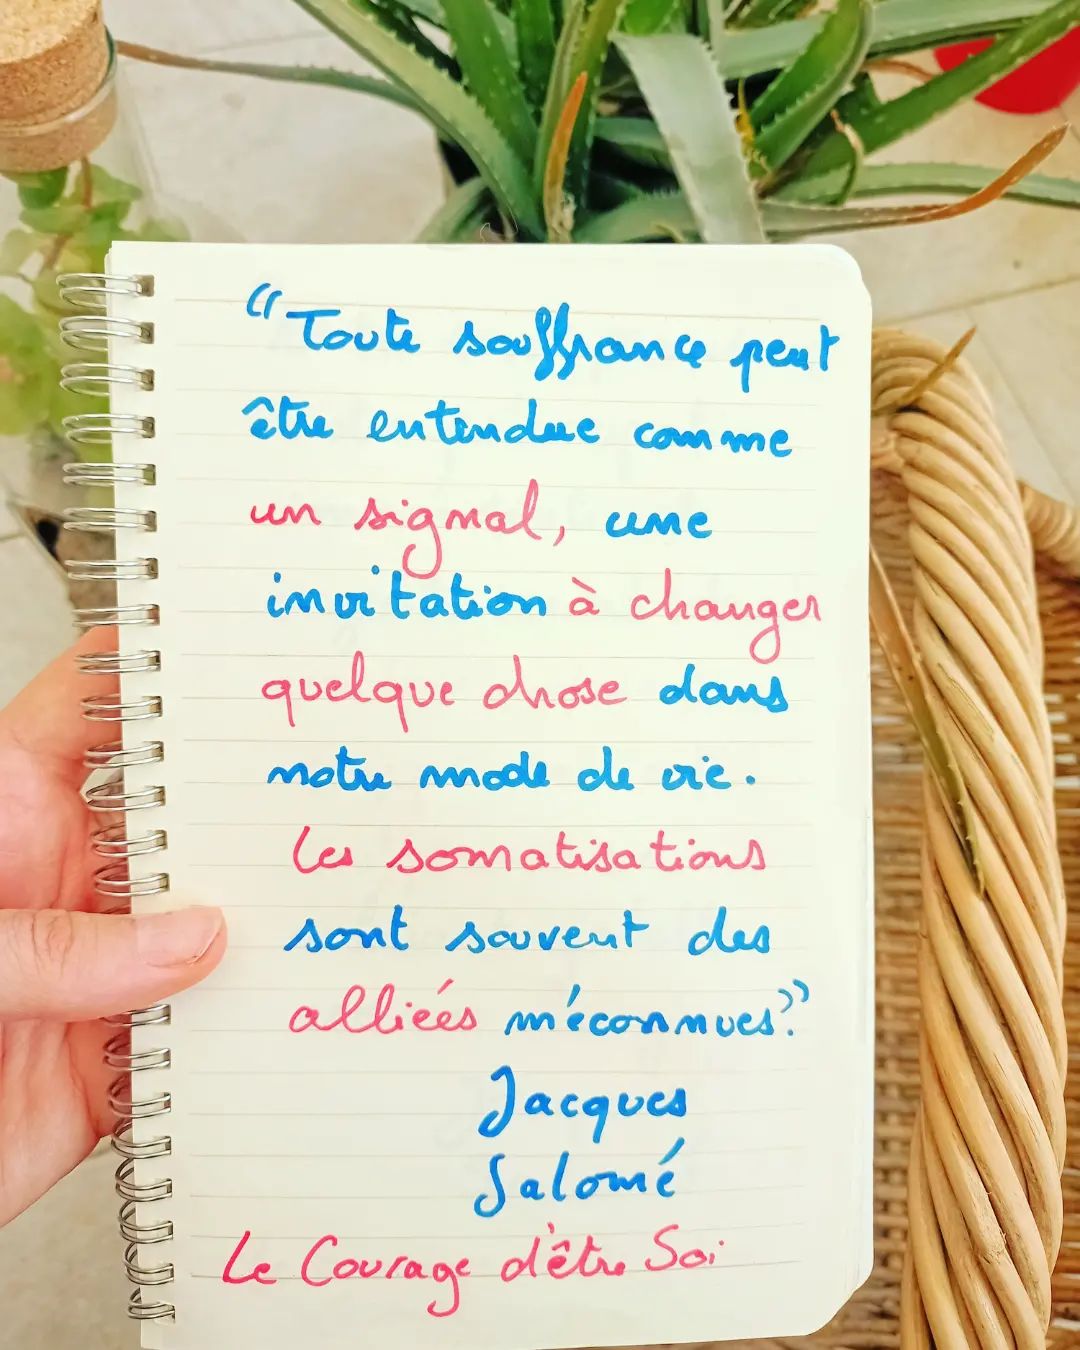 “Toute souffrance peut
être entendue comme
un signal, une
invitation à changer
quelque chose dans
notre mode de vie.
Les somatisations
sont souvent des
alliées méconnues.”
Jacques
Salomé
Le Courage d'être Soi